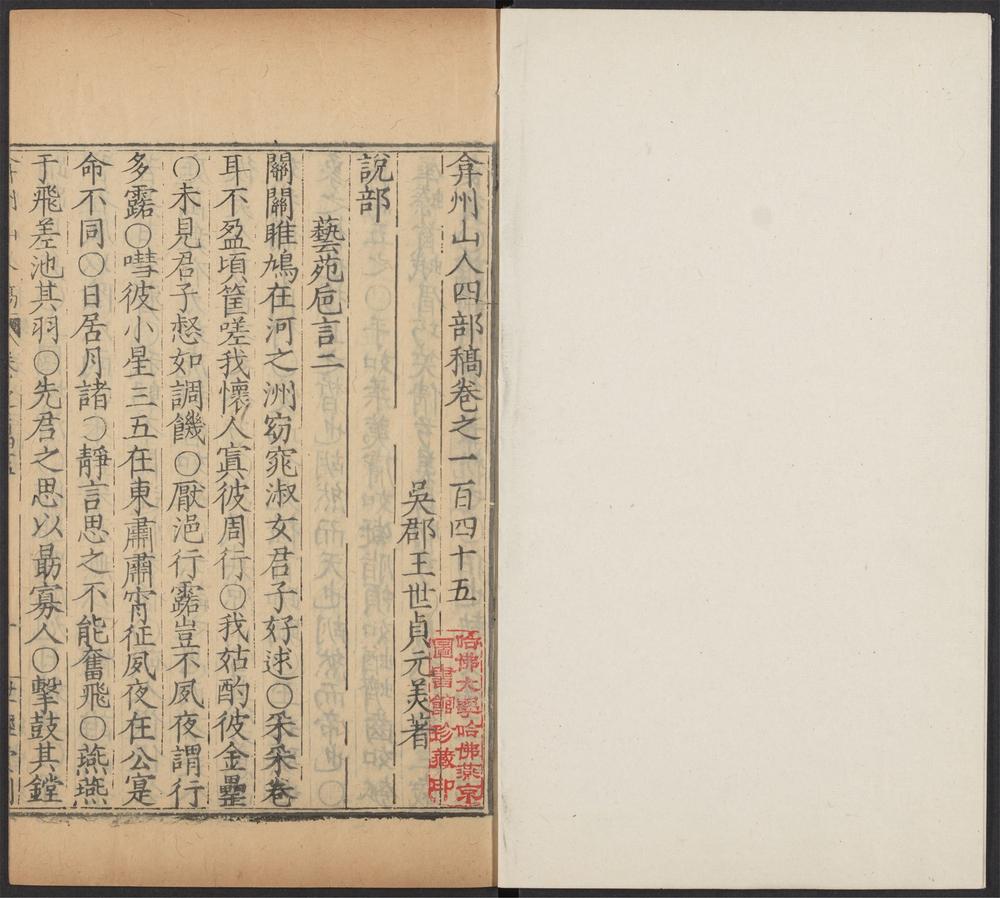 弇州山人四部稿卷之一百四十五
吳郡王世貞元美著
說部
藝苑卮言二
關關雎鳩在河之洲窈窕淑女君子好逑○采采卷
耳不盈頃筐嗟我懷人寘彼周行○我姑酌彼金罍
○未見君子惄如調饑○厭浥行露豈不夙夜謂行
多露○嘒彼小星三五在東肅肅宵征夙夜在公寔
命不同○日居月諸○靜言思之不能奮飛○燕燕
于飛差池其羽○先君之思以勗寡人○擊鼓其鏜
哈佛大學哈佛燕京
圖書館珍藏印